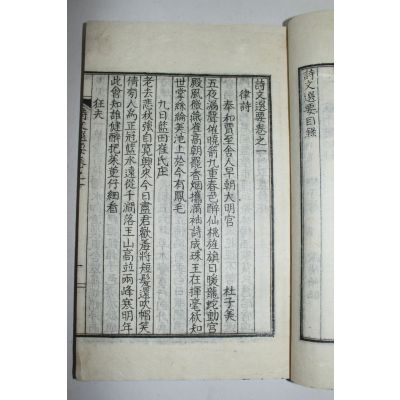 詩文選要目錄
詩文選要卷之一
律詩
奉和賈至舍人早朝大明宮 杜子美
五夜漏聲催曉箭九重春色醉仙桃旌旗日暖龍蛇動宮
殿風微燕雀高朝罷香烟携滿袖詩成珠玉在揮毫欲知
世掌絲綸美池上於今有鳳毛
九日藍田崔氏庄
老去悲秋强自寬興來今日盡君歡羞將短髮還吹帽笑
倩旁人爲正冠藍水遠從千澗落玉山高並兩峰寒明年
此會知誰健醉把茱萸仔細看
狂夫